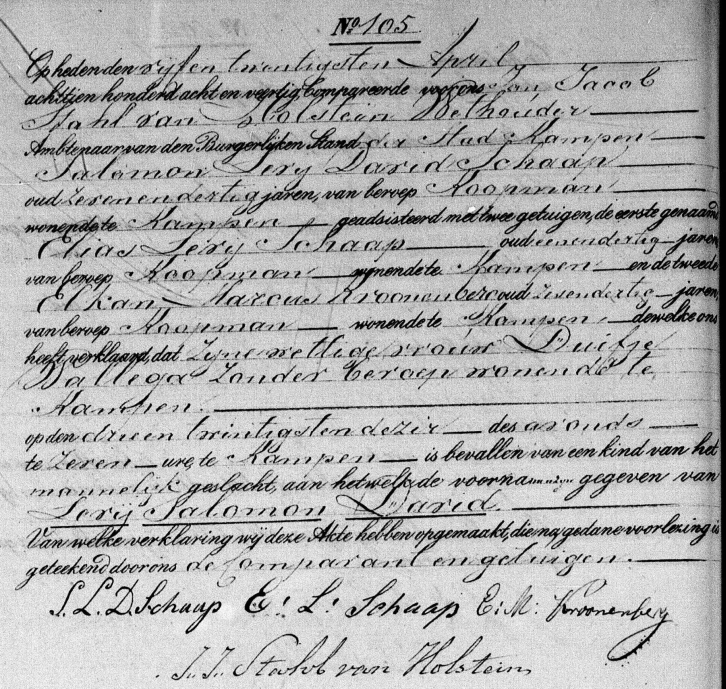 No 105
Op heden den vijf en twintigsten April
achttien honderd acht en veertig Compareerde voor ons Jan Jacob
Stahl van Holstein Wethouder
Ambtenaar van den Burgerlijken Stand der Stad Kampen
Salomon Levy David Schaap
oud zevenendertig jaren, van beroep Koopman
wonende te Kampen geadsisteerd met twee getuigen, de eerste genaamd
Elias Levy Schaap oud eenendertig jaren
van beroep Koopman wonende te Kampen en de tweede
Elkan Marcus Kroonenberg oud zesendertig jaren
van beroep Koopman wonende te Kampen dewelke ons
heeft verklaard, dat Zyne wettige vrouw Duifje
Ballega zonder beroep wonende te
Kampen.
op den drieen twintigsten dezer des avonds
te zeven ure, te Kampen is bevallen van een kind van het
mannelijk geslacht, aan hetwelk de voornamen zijn gegeven van
Levij Salomon David
Van welke verklaring wij deze Akte hebben opgemaakt, die na gedane voorlezing is
geteekend door ons de Comparant en getuigen.
S. L. D. Schaap E: L: Schaap E: M: Kroonenberg
J. J. Stahl van Holstein